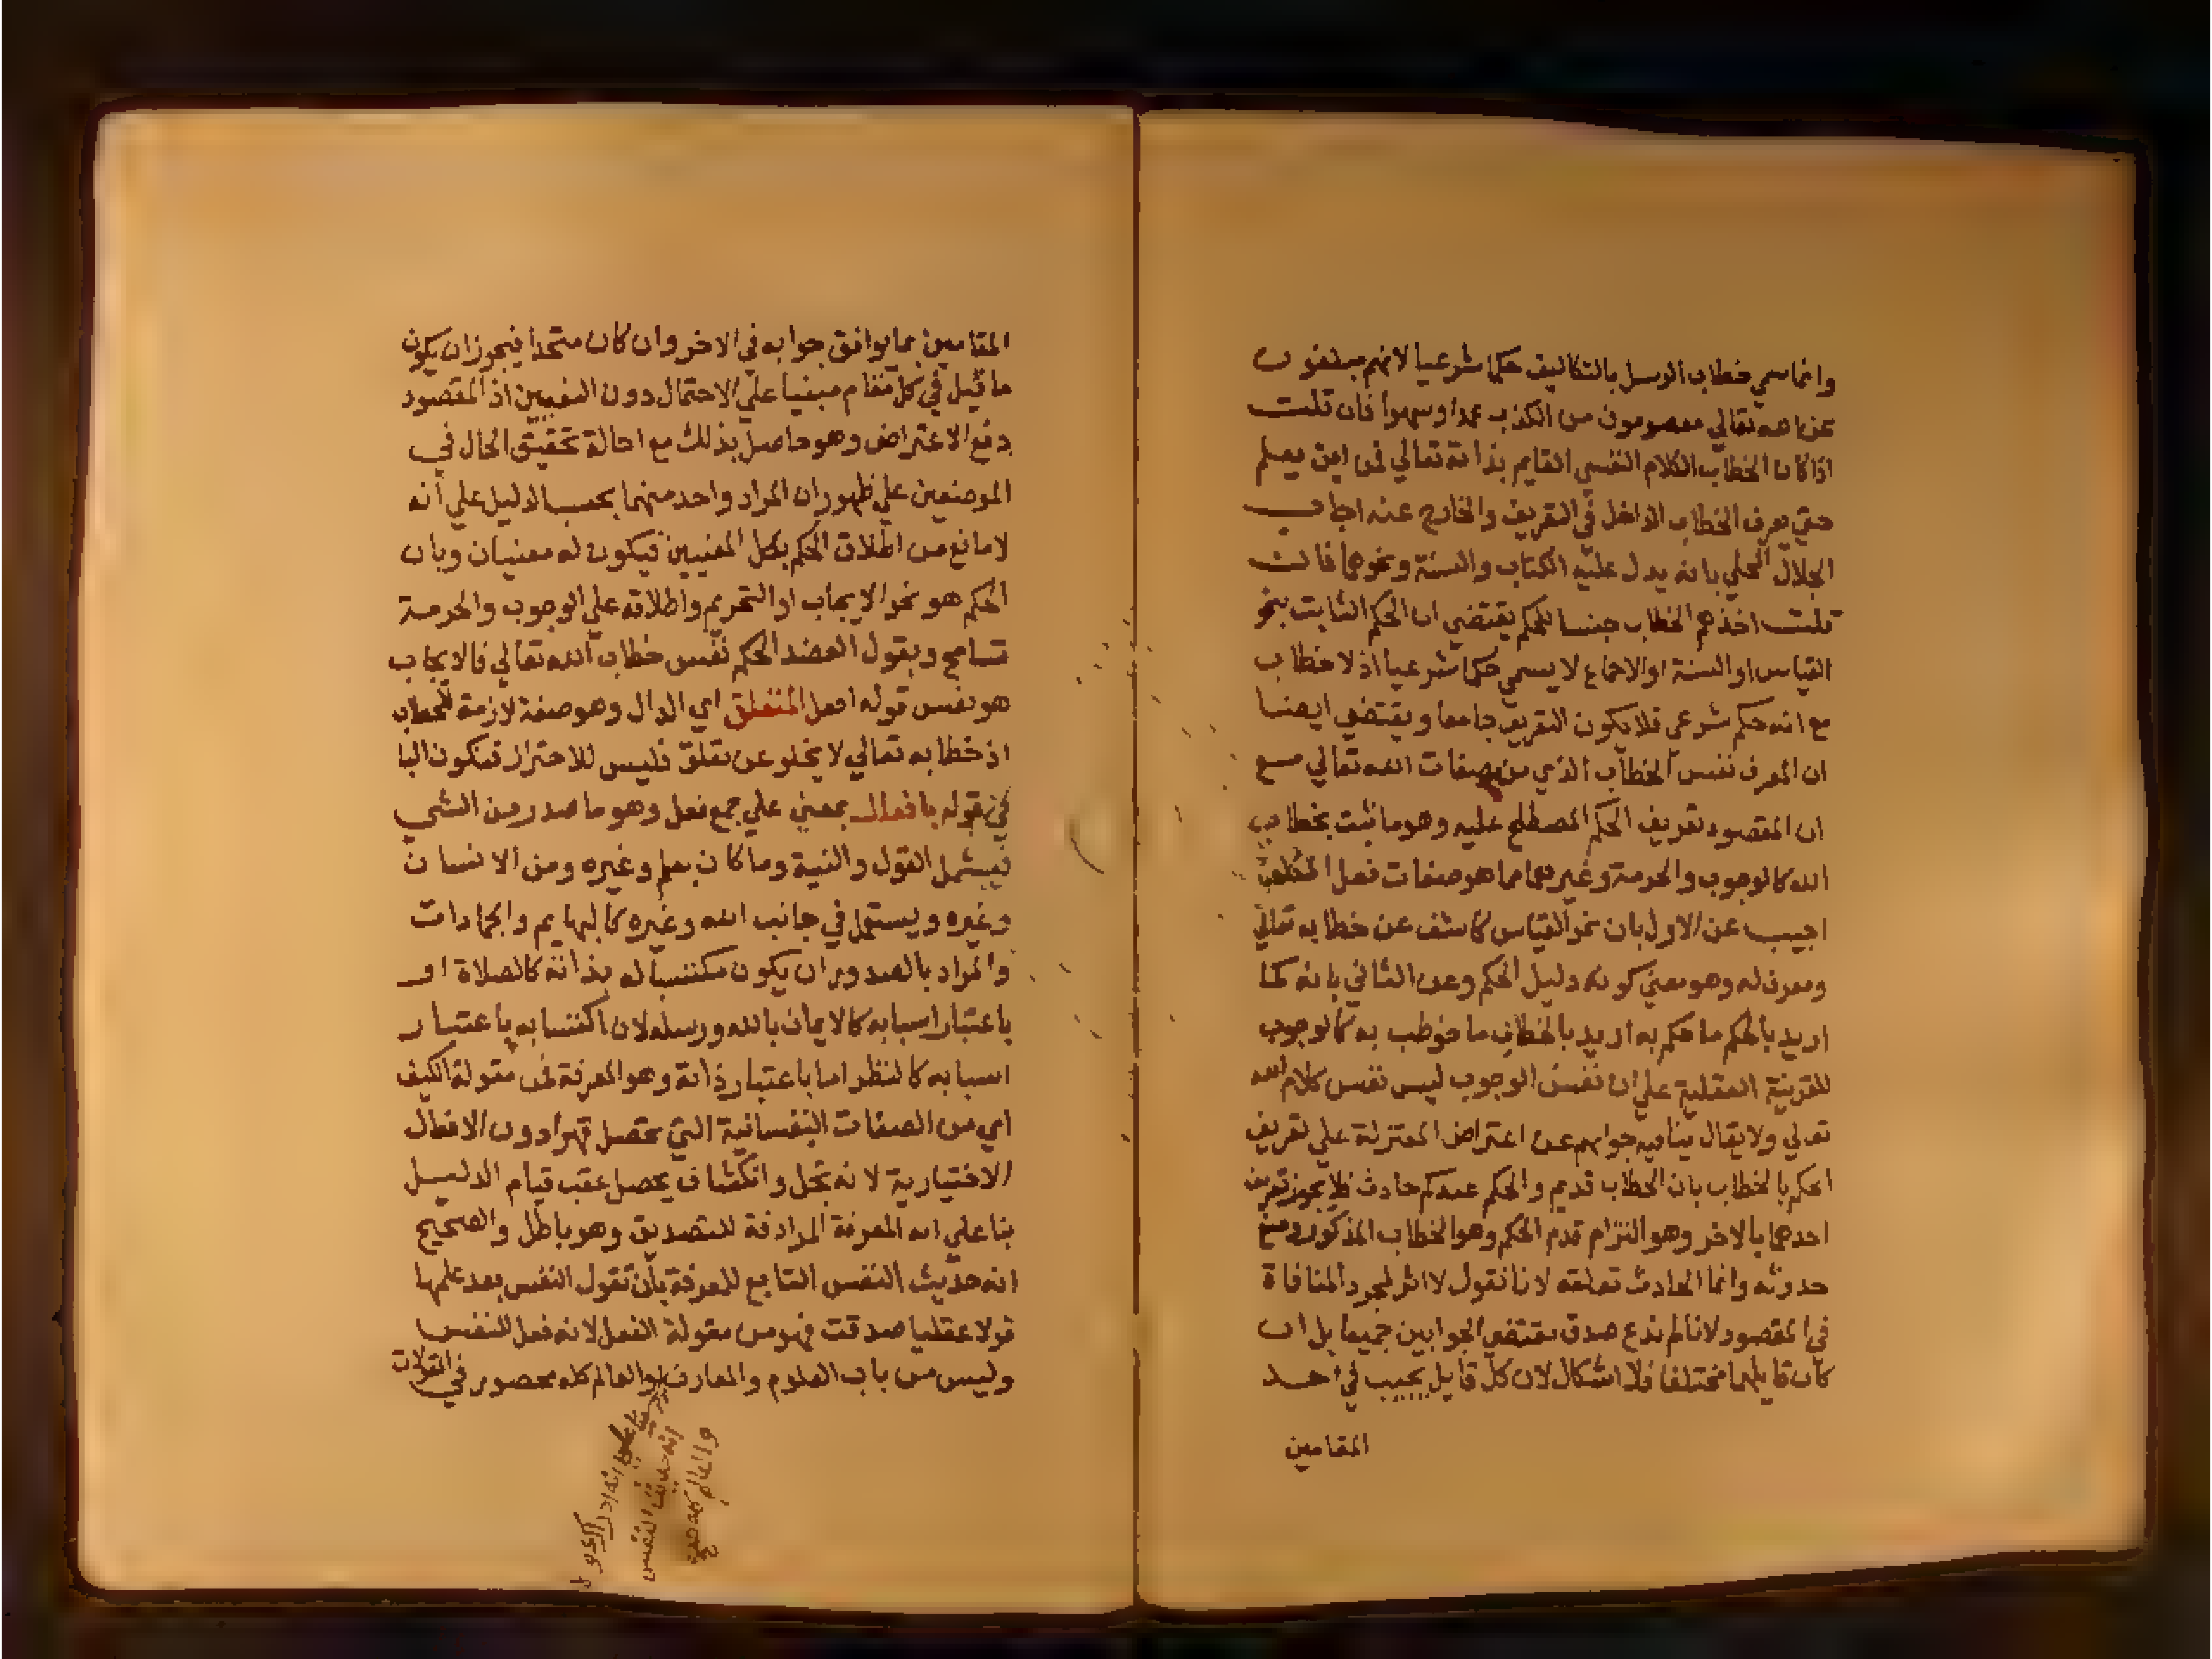 وانما سمي خطاب الرسل بالتكاليف حكما شرعيا لانهم مبلغون
عن الله تعالي معصومون من الكذب عمدا وسهوا فان قلت
اذا كان الخطاب الكلام النفسي القايم بذاته تعالي فمن اين يعلم
حتي يعرف الخطاب الداخل في التعريف والخارج عنه اجاب
الجلال المحلي بانه يدل عليه الكتاب والسنة ونحوهما فان
قلت اخذهم الخطاب جنسا للحكم يقتضي ان الحكم الثابت بنحو
القياس او السنة او الاجماع لا يسمي حكما شرعيا اذ لا خطاب
مع انه حكم شرعي فلا يكون التعريف جامعا ويقتضي ايضا
ان المعرف نفس الخطاب الذي من صفات الله تعالي مع
ان المقصود تعريف الحكم المصطلح عليه وهو ما ثبت بخطاب
الله كالوجوب والحرمة وغيرهما مما هو صفات فعل المكلف
اجيب عن الاول بان نحو القياس كاشف عن خطابه تعالي
ومعرف له وهو معني كونه دليل الحكم وعن الثاني بانه كما
اريد بالحكم ما حكم به اريد بالخطاب ما خوطب به كالوجوب
للقرينة العقلية علي ان نفس الوجوب ليس نفس كلام الله
تعالي ولا يقال ينافيه جوابهم عن اعتراض المعتزلة علي تعريف
الحكم بالخطاب بان الخطاب قديم والحكم عندكم حادث فلا يجوز تعريف
احدهما بالاخر وهو التزام قدم الحكم وهو الخطاب المذكور ومنع
حدوثه وانما الحادث تعلقه لانا نقول لا اثر لمجرد المنافاة
في المقصود لانا لم ندع صدق مقتضي الجوابين جميعا بل ان
كان قايلهما مختلفا فلا اشكال لان كل قايل يجيب في احد
المقامين
المقامين بما يوافق جوابه في الاخر وان كان متحدا فيجوز ان يكون
ما قيل في كل مقام مبنيا علي الاحتمال دون التعيين اذ المقصود
دفع الاعتراض وهو حاصل بذلك مع احالة تحقيق الحال في
الموضعين علي ظهور ان المراد واحد منهما بحسب الدليل علي انه
لا مانع من اطلاق الحكم بكل المعنيين فيكون له معنيان وبان
الحكم هو نحو الايجاب او التحريم واطلاقه علي الوجوب والحرمة
تسامح وبقول العضد الحكم نفس خطاب الله تعالي فالايجاب
هو نفس قوله افعل المتعلق اي الدال وهو صفة لازمة لخطاب
اذ خطابه تعالي لا يخلو عن تعلق فليس للاحتراز فتكون البا
في قوله بافعال بمعني علي جمع فعل وهو ما صدر من الشي
فيشمل القول والنية وما كان بعلم وغيره ومن الانسان
وغيره ويستعمل في جانب الله وغيره كالبهايم والجمادات
والمراد بالصدور ان يكون مكتسبا له بذاته كالصلاة او
باعتبار اسبابه كالايمان بالله ورسله لان اكتسابه باعتبار
اسبابه كالنظر اما باعتبار ذاته وهو المعرفة فمن مقولة الكيف
اي من الصفات النفسانية التي تحصل قهرا دون الافعال
الاختيارية لانه تجل وانكشاف يحصل عقب قيام الدليل
بنا علي انه المعرفة المرادفة للتصديق وهو باطل والصحيح
انه حديث النفس التابع للمعرفة بان تقول النفس بعد علمها
قولا عقليا صدقت فهو من مقولة الفعل لانه فعل للنفس
وليس من باب العلوم والمعارف والعالم كله محصور في المقولات
انه حديث النفس
والعالم كله